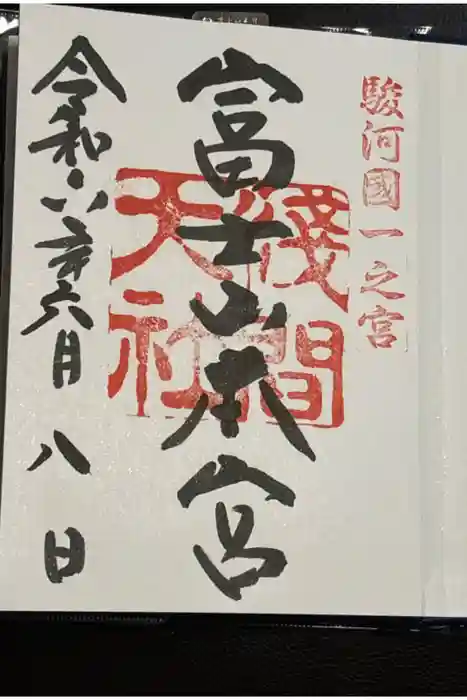 駿河國一之宮
富士山本宮
淺間大社
令和六年六月八日